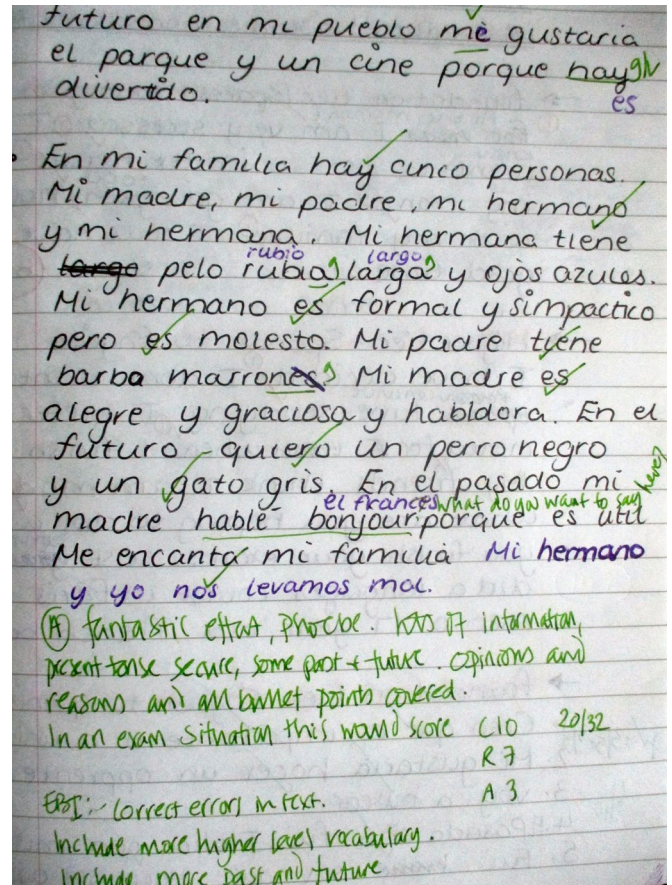 futuro en mi pueblo me gustaria
el parque y un cine porque hay
divertido.
es
En mi familia hay cinco personas.
Mi madre, mi padre, mi hermano
y mi hermana. Mi hermana tiene
rubio largo
large pelo rubia larga? y ojos azules.
Mi hermano es formal y simpactico
pero es molesto. Mi padre tiene
barba marrones? Mi madre es
alegre y graciosa y habldora. En el
futuro quiero un perro negro
y un gato gris. En el pasado mi
el frances what do you want to say here?
madre hablé bonjour porque es util
Me encanta mi familia Mi hermano
y yo nos levamos mal.
A fantastic effort, Phoebe. Lots of information,
present tense secure, some past & future. Opinions and
reasons and all bullet points covered.
In an exam situation this would score C10 20/32
R7
A3
EBI:- Correct errors in text.
Include more higher level vocabulary.
Include more past and future